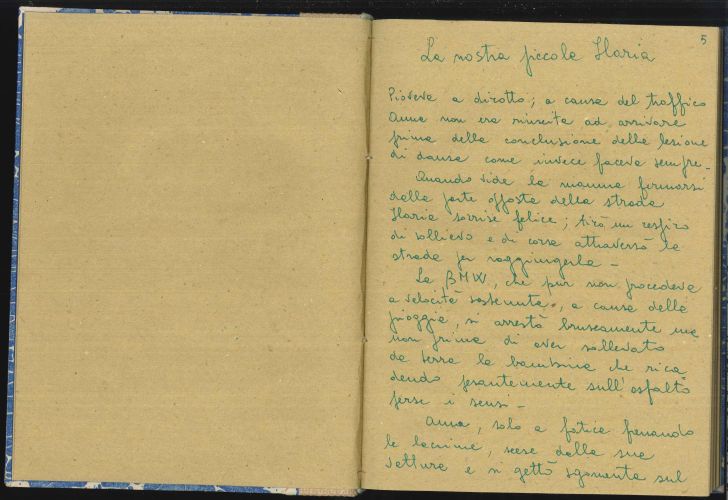 5
La nostra piccola Ilaria
Pioveva a dirotto; a causa del traffico
Anna non era riuscita ad arrivare
prima della conclusione della lezione
di danza come invece faceva sempre.
Quando vide la mamma fermarsi
dalla parte opposta della strada
Ilaria sorrise felice; tirò un respiro
di sollievo e di corsa attraversò la
strada per raggiungerla.
La BMW, che pur non procedeva
a velocità sostenuta, a causa della
pioggia, si arrestò bruscamente ma
non prima di aver sollevato
da terra la bambina che rica
dendo pesantemente sull'asfalto
perse i sensi.
Anna, solo a fatica frenando
le lacrime, scese dalla sua
vettura e si gettò sgomenta sul